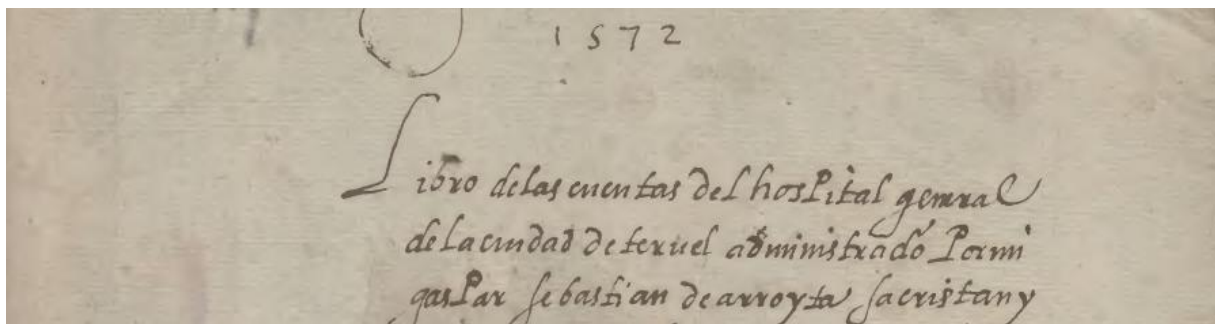 1572
Libro delas cuentas del hosPital general
dela ciudad de teruel administrado Por mi
gasPar sebastian de arroyta sacristan y